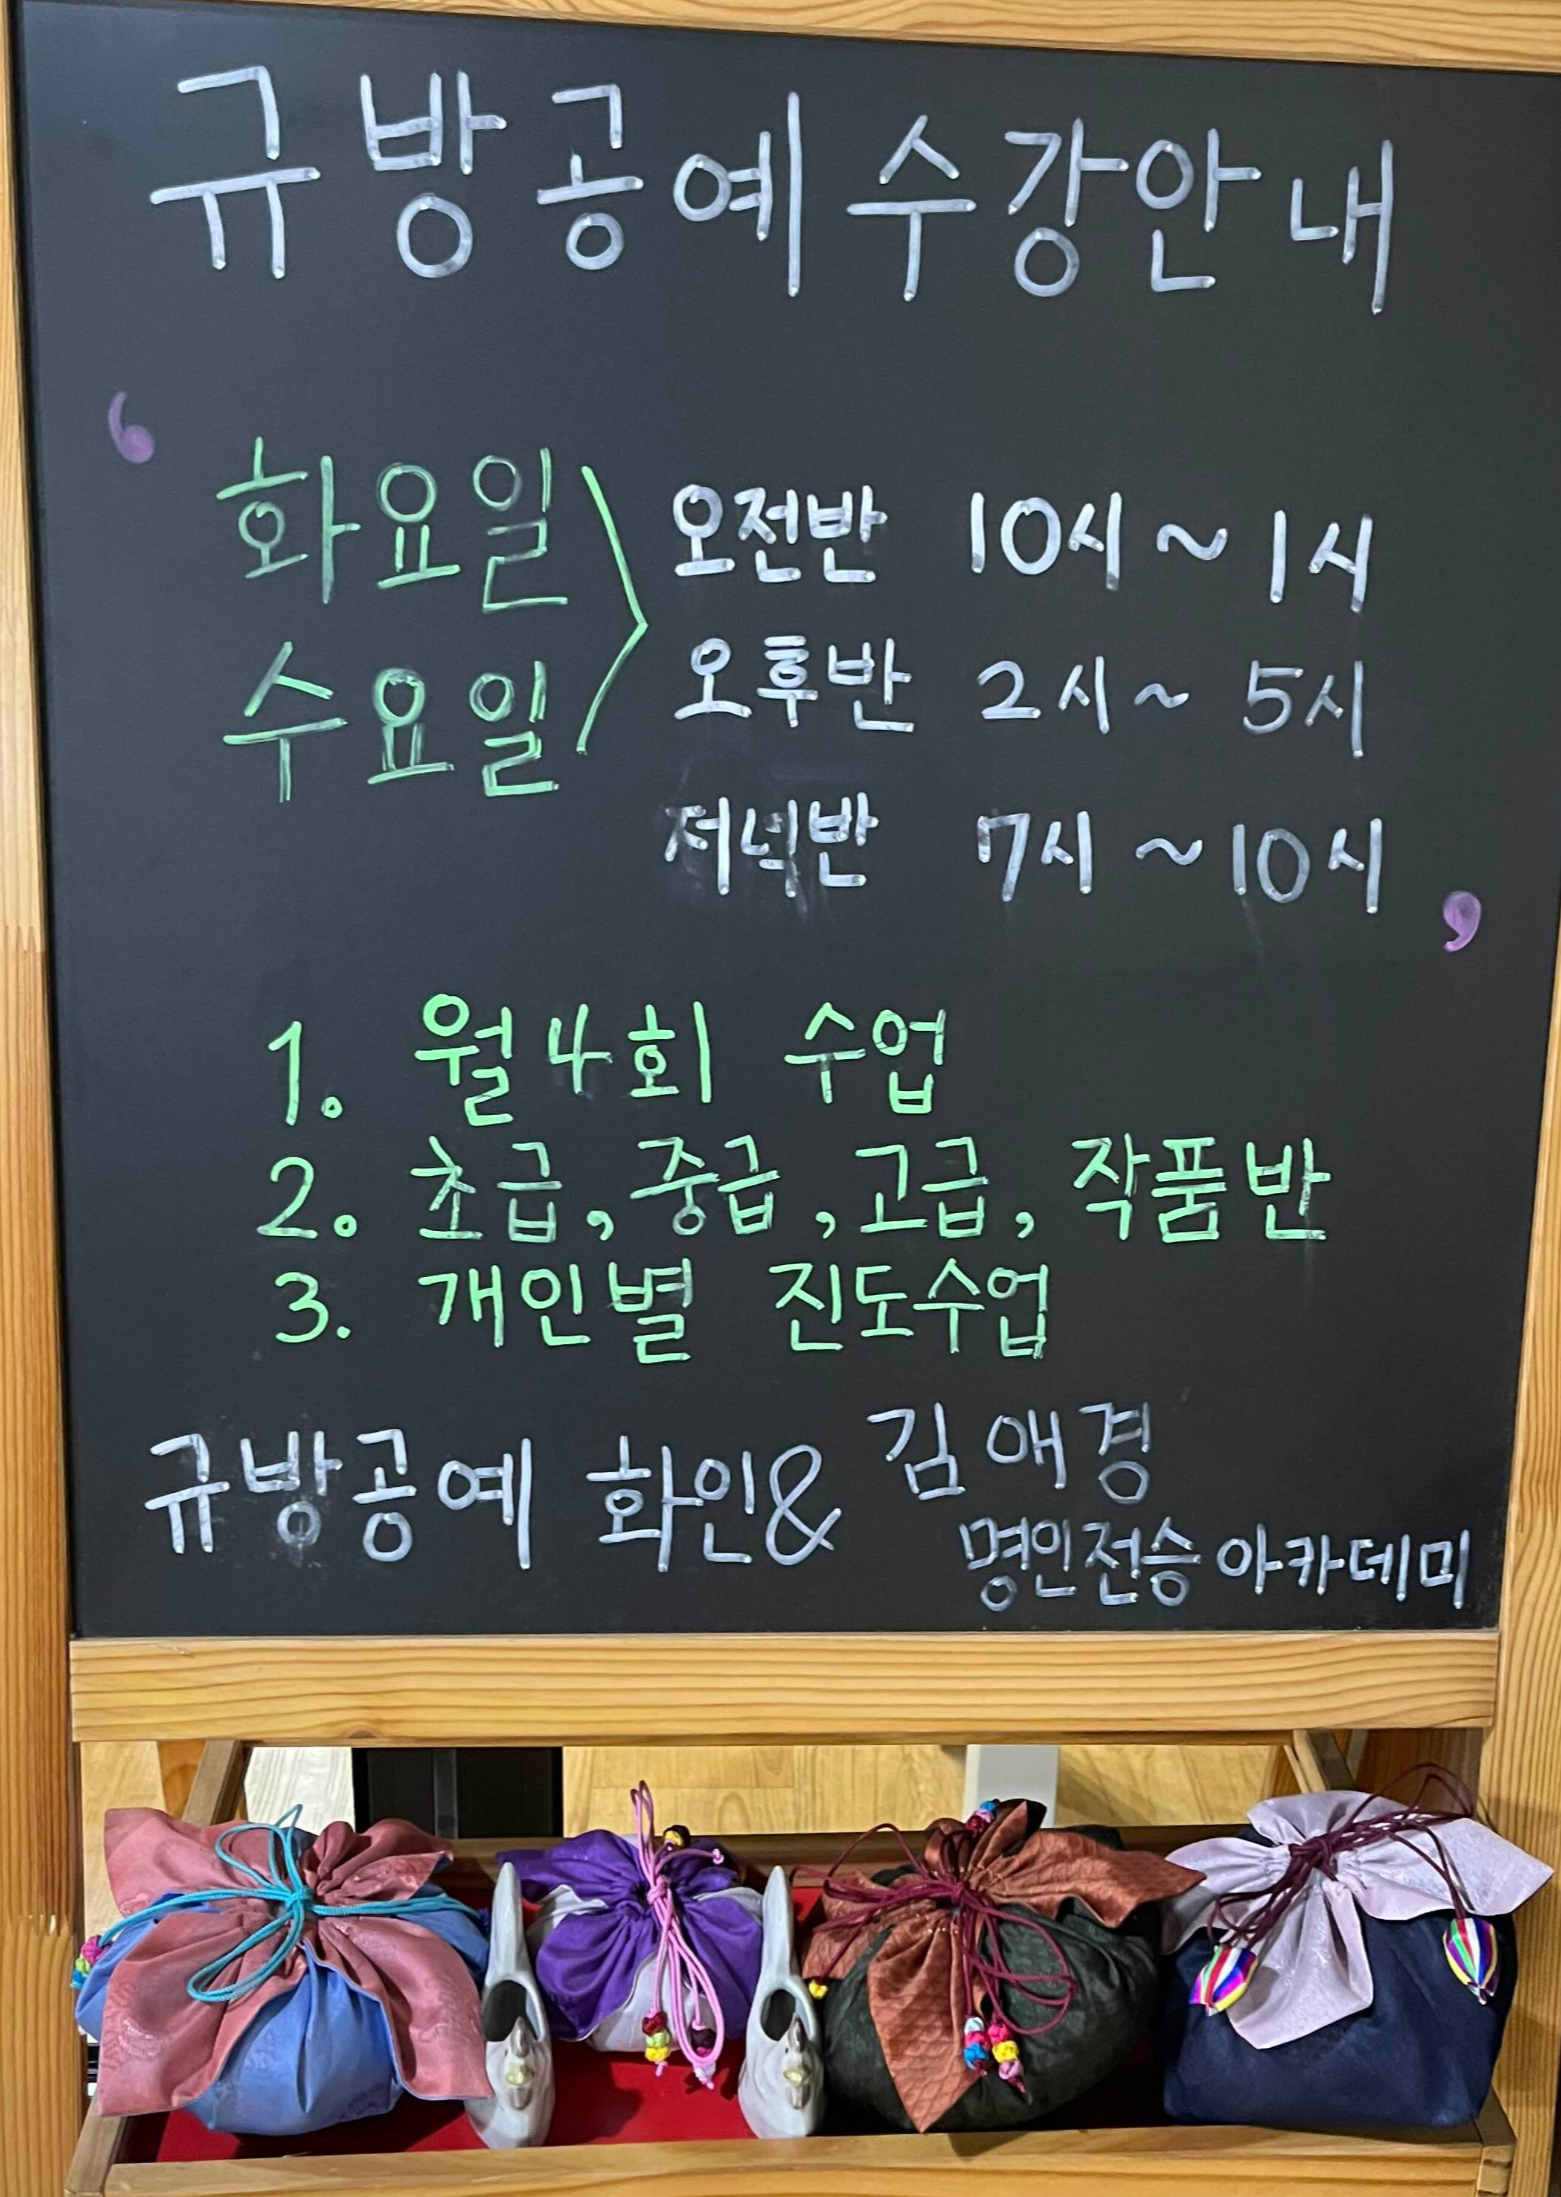 규방공예 수강안내
‘
화요일 오전반 10시 ~ 1시
수요일 오후반 2시 ~ 5시
저녁반 7시 ~ 10시
’
1. 월4회 수업
2. 초급, 중급, 고급, 작품반
3. 개인별 진도수업
규방공예 화인& 김애경
명인전승 아카데미